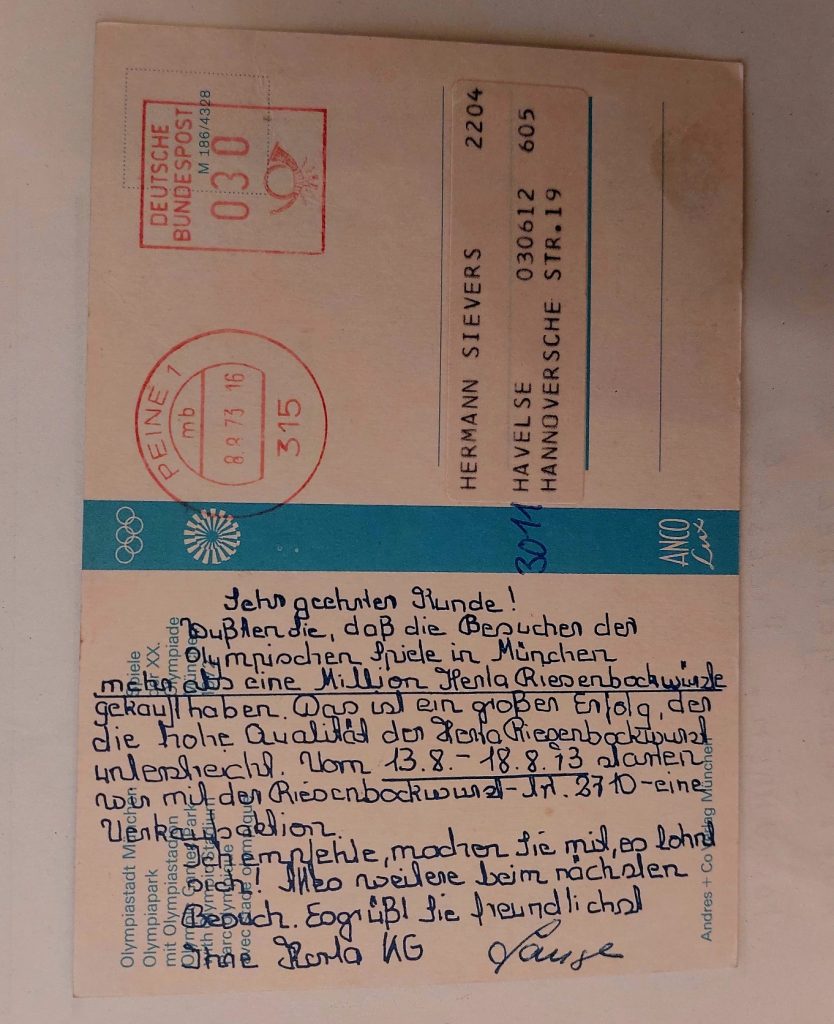 Sehr geehrter Kunde!
Wußten Sie, daß die Besucher der
Olympischen Spiele in München
mehr als eine Million Herta Riesenbockwürste
gekauft haben. Das ist ein großer Erfolg, der
die hohe Qualität der Herta Riesenbockwurst
unterstreicht. Vom 13.8. - 18.8.73 starten
wir mit der Riesenbockwurst - Art. 2710 - eine
Verkaufsaktion.
Ich empfehle, machen Sie mit, es lohnt
sich! Alles weitere beim nächsten
Besuch. Es grüßt Sie freundlichst
Ihre Herta KG Lange
Olympiastadt München
Olympiapark
mit Olympiastadion
Spiele
der XX.
Olympiade
München
Andres + Co Verlag München
ANCO
Lux
DEUTSCHE
BUNDESPOST
M 186/4328
030
PEINE 1
mb
8.8.73 16
315
HERMANN SIEVERS 2204
3011 HAVELSE 030612 605
HANNOVERSCHE STR.19